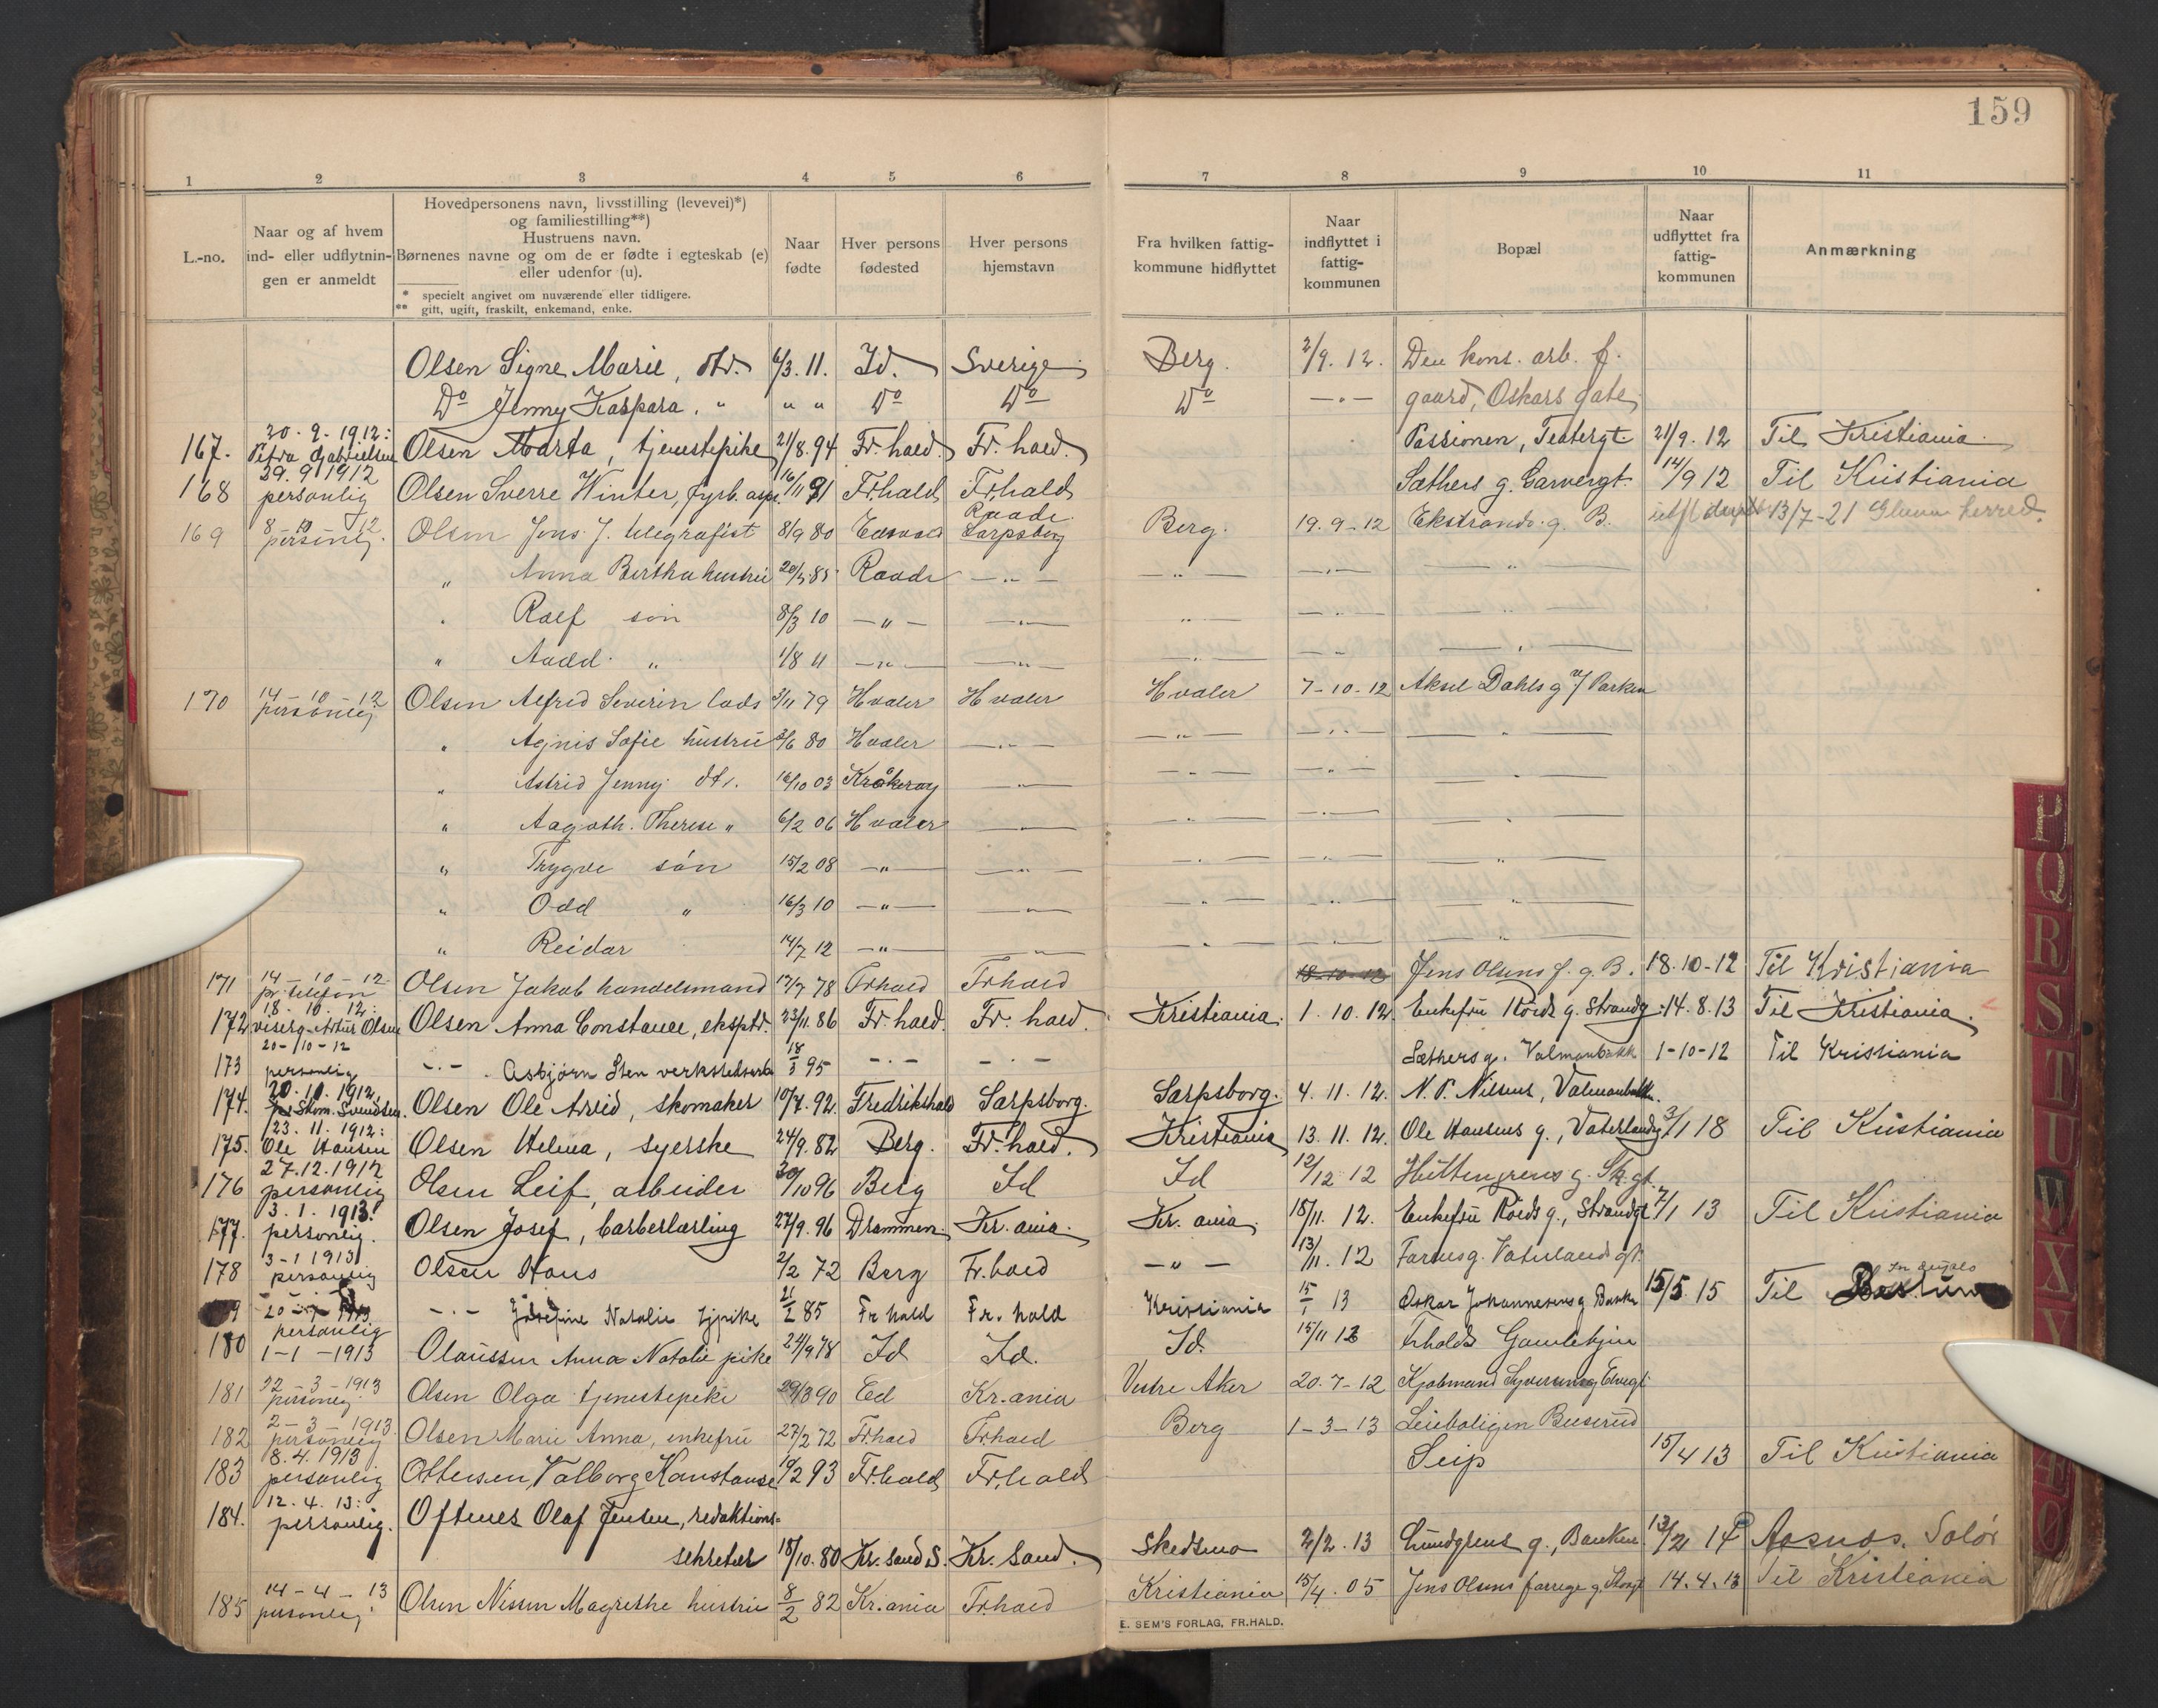 159
1 2 3 4 5 6 7 8 9 10 11
L.-no.
Naar og af hvem
ind- eller udflytnin-
gen er anmeldt
Hovedpersonens navn, livsstilling (levevei)*)
og familiestilling**)
Hustruens navn.
Børnenes navne og om de er fødte i egteskab (e)
eller udenfor (u).
* specielt angivet om nuværende eller tidligere.
** gift, ugift, fraskilt, enkemand, enke.
Naar
fødte
Hver persons
fødested
Hver persons
hjemstavn
Fra hvilken fattig-
kommune hidflyttet
Naar
indflyttet i
fattig-
kommunen
Bopæl
Naar
udflyttet fra
fattig-
kommunen
Anmærkning
Olsen Signe Marie, dtr. 6/3. 11. Id. Sverige Berg. 2/9. 12. Den kons. arb. f.
Do Jenny Kaspara. " " " Do Do Do —"— gaard, Oskars gate
30-9-1912:
167. Petra Gabrielsen Olsen Marta, tjenestepike 21/8.94 Fr.hald. Fr. hald. Passionen, Teatergt. 21/9. 12 Til Kristiania.
29.9 1912
168 personlig Olsen Sverre Winter, fyrb. asp. 16/11 91 Fr.hald Fr.hald Sæthers g. Garvergt. 14/9 12 Til Kristiania
8-10-12 Raade
169 personlig. Olsen Jens J. telegrafist 8/9 80 Sarpsborg Berg. 19.9-12 Ekstrands g. B. 13/7-21 Glemm herred.
" Anna Bertha hustru 20/3.85 Raade —"— —"— —"— —"—
. Ralf søn 8/3 10 —"— —"— —"— —"—
" Aadd. " 1/8 11 —"— —"— —"— —"— —"—
14-10-12
170 personlig Olsen Alfred Severin lods 3/11 79 Hvaler Hvaler Hvaler 7-10-12 Aksel Dahls g v/ Parken
" Agnis Sofie hustru 3/6 80 Hvaler —"— —"— —"— —"—
" Astrid Jenny dtr. 16/10 03 Kråkerøy —"— —"— —"— —"—
" Aagoth. Therese " 6/2 06 Hvaler —"— —"— —"— —"—
" Trygve søn 15/2 08 —"— —"— —"— —"— —"—
" Odd " 16/3 10 —"— —"— —"— —"— —"—
" Reidar 14/7 12 —"— —"— —"— —"— —"—
14-10-12
171 pr. telefon Olsen Jakob handelsmand 17/7 78 Frhald Frhald 18-10-12 Jens Olsens f. g. B. 18.10-12 Til Kristiania
18. 10. 12:
172 viserg. Artur Olsen Olsen Anna Constance, eksptr. 23/11.86 Fr. hald. Fr. hald. Kristiania. 1. 10. 12. Enkefru Röeds g. Strandg. 14. 8. 13 Til Kristiania.
20-10-12
173 personlig —"— Asbjørn Sten verkstedsarb 18/3 95 —"— —"— Sæthers g. Valmanbakk 1-10-12 Til Kristiania
20. 10. 1912.
174. Skom. Svendsen. Olsen Ole Arvid, skomaker 10/7. 92. Fredrikshald Sarpsborg. Sarpsborg. 4. 11. 12. N. P. Nilsens, Valmanbakk.
23. 11. 1912:
175. Ole Hansen Olsen Helma, syerske 24/9. 82 Berg. Fr. hald. Kristiania 13. 11. 12. Ole Hansens g., Vaterlandg 3/1 18 Til Kristiania
27.12.1912
176 personlig Olsen Leif, arbeider 30/10 96 Berg Id Id 12/12 12 Hüttengrens g. Sk.gt.
3. 1. 1913:
177. personlig. Olsen Josef, barberlærling 27/9. 96 Drammen. Kr. ania. Kr. ania. 18/11. 12. Enkefru Röeds g., Strandgt 7/1 13 Til Kristiania
3-1 1913
178 personlig Olsen Hans 2/2 72 Berg Fr.hald —"— 13/11. 12 Farmsg. Vaterlandsgt.
9 20- 1913 —"— Josefine Natalie tjpike 85 Fr hald Fr. hald Kristiania 15/1 13 Oskar Johannesens g Banken 15/5. 15 Til
personlig
180 1-1-1913 Olaussen Anna Natalie pike 24/9 78 Id Id. Id. 15/11 12 Frhalds Gamlehjem
22-3-1913
181 personlig Olsen Olga tjenestepike 29/3 90 Ed Kr.ania Vestre Aker 20. 7-12 Kjøbmand Syversens g Elvegt.
2-3-1913.
182 personlig Olsen Marie Anna, enkefru 27/2 72 Fr.hald Frhald Berg 1-3-13 Leieboligen Buserud
8. 4. 1913
183 personlig Ottersen, Valborg Konstanse 10/2 93 Fr.hald Fr.hald Seip 15/4 13 Til Kristiania
12. 4. 13:
184. personlig. Oftenes Olaf Jensen, redaktions=
sekretær 18/10. 80 Kr.sand S. Kr. Sand. Skedsmo 2/2. 13 Lundgrens g., Banken. 13/2 14 Aasnæs. Solör
14-4-13
185 personlig Olsen Nissen Magrethe hustru 8/2 82 Kr.ania Fr.hald Kristiania 15/4. 05 Jens Olsens farrege g. Storgt 14. 4. 13 Til Kristiania
E. SEM'S FORLAG, FR.HALD.
P
Q
R
S
T
U
W
X
Y
Ø